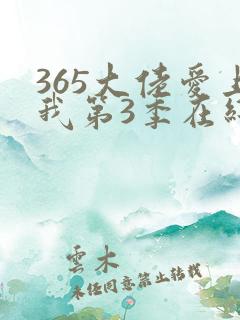 365大佬爱上
我第3季在线
雲木
未经同意禁止转载